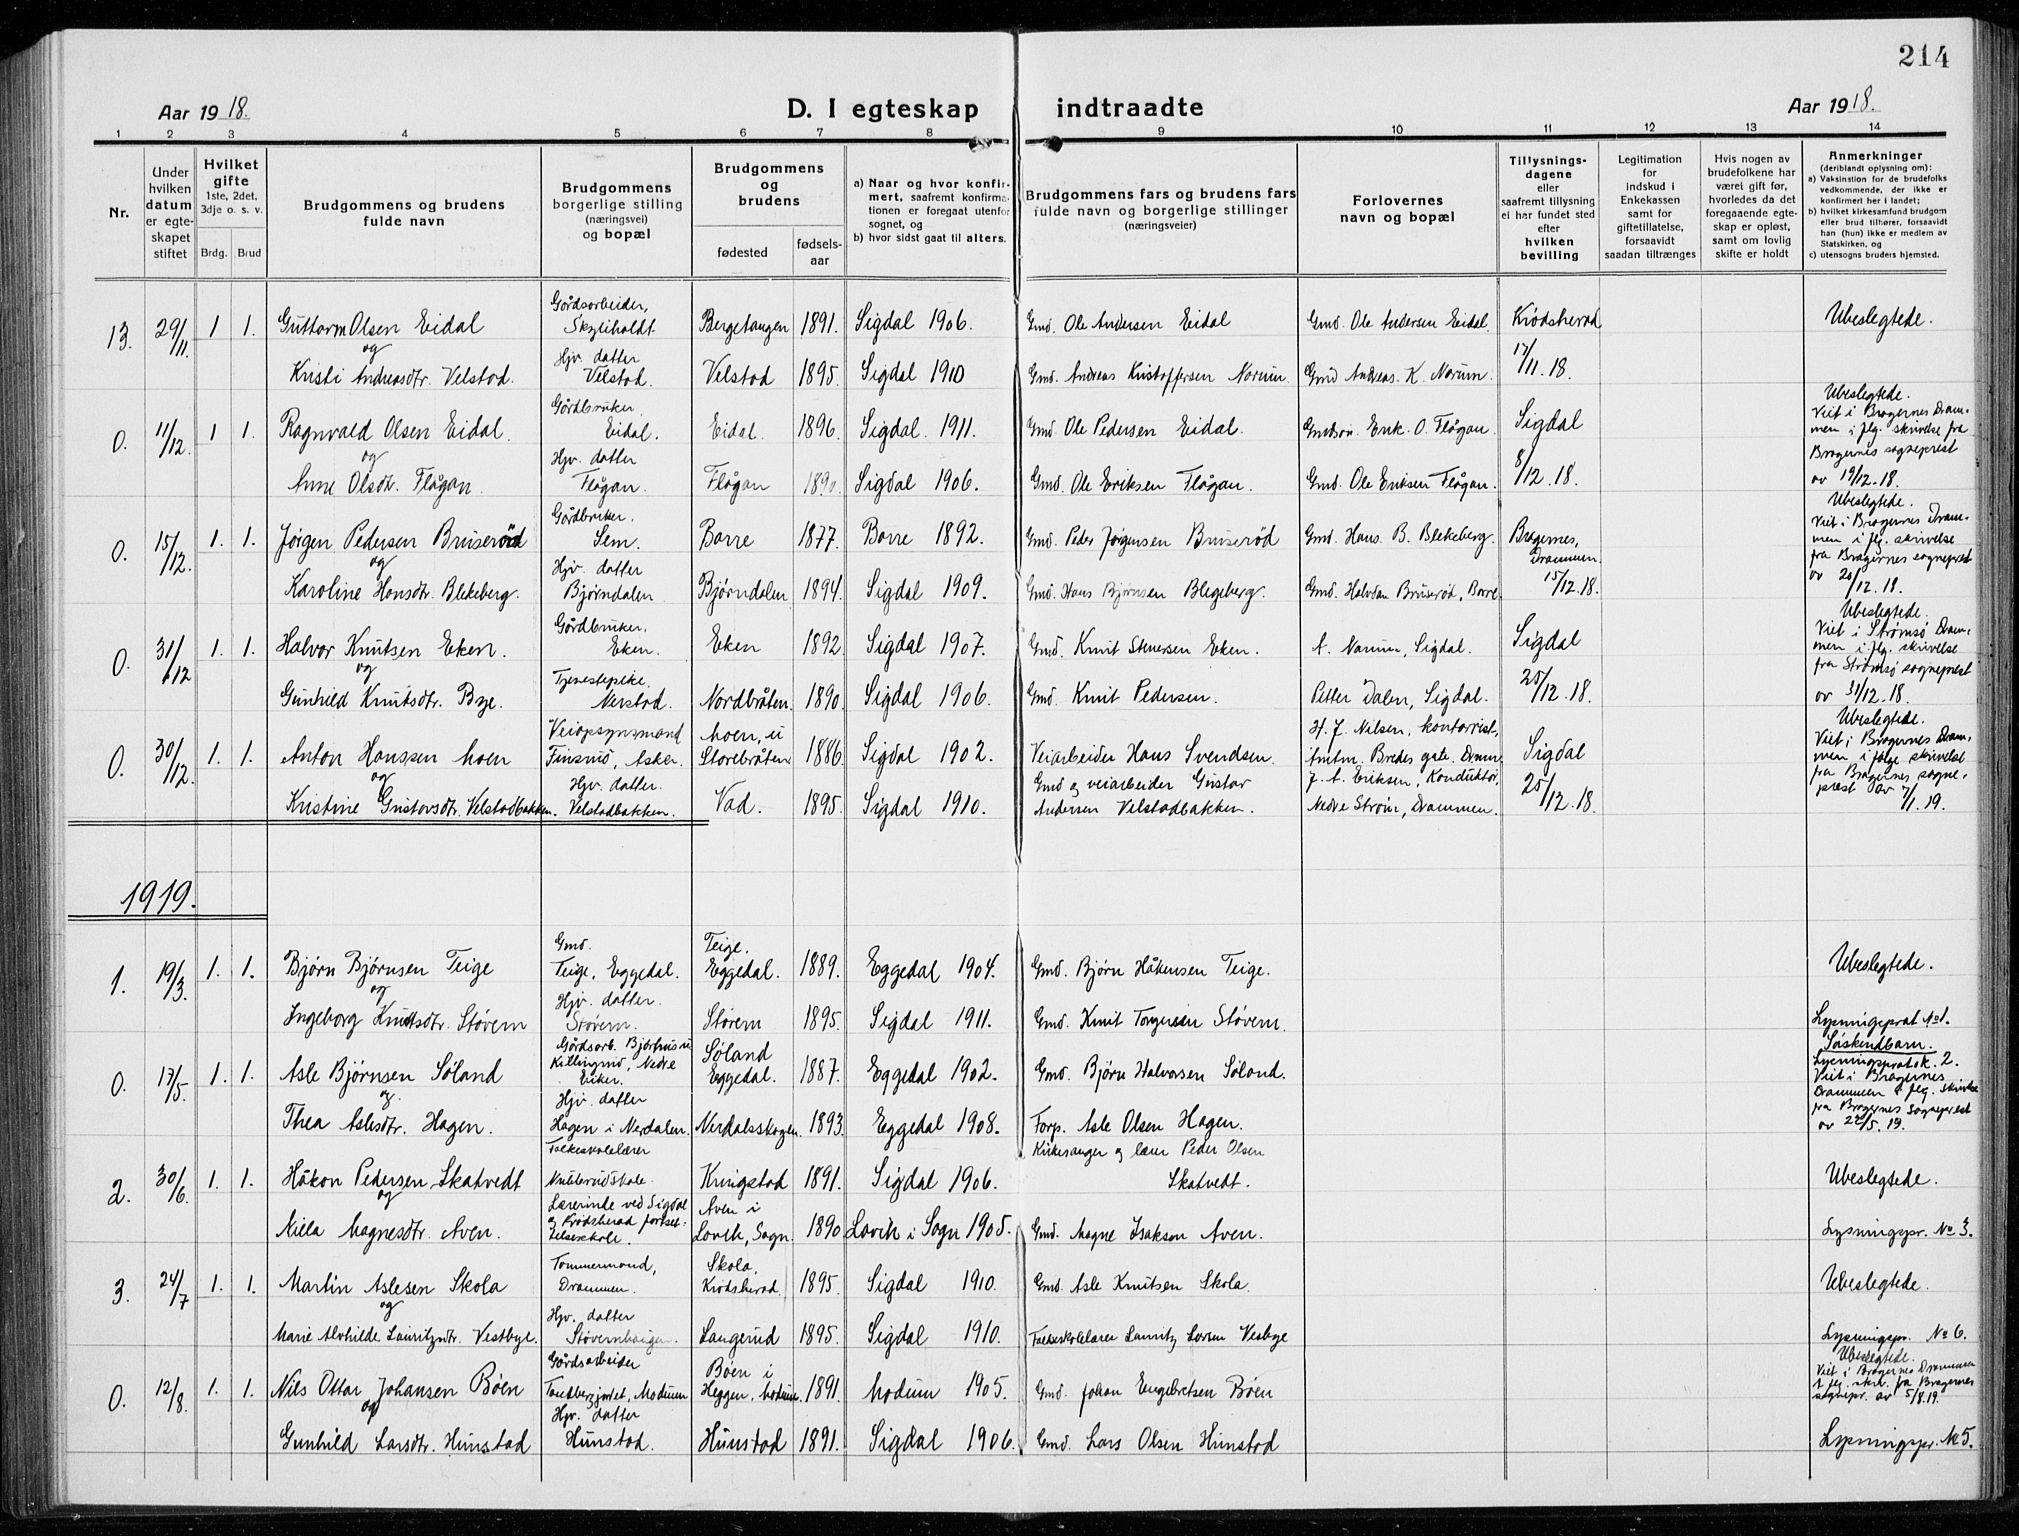 214
Aar 1918. D. I egteskap indtraadte Aar 1918.
1 2 3 4 5 6 7 8 9 10 11 12 13 14
Nr.
Under hvilken datum er egteskapet stiftet
Hvilket gifte 1ste, 2det, 3dje o. s. v.
Brdg. Brud
Brudgommens og brudens fulde navn
Brudgommens borgerlige stilling (næringsvei) og bopæl
Brudgommens og brudens
fødested fødselsaar
a) Naar og hvor konfirmert, saafremt konfirmationen er foregaat utenfor sognet, og
b) hvor sidst gaat til alters.
Brudgommens fars og brudens fars fulde navn og borgerlige stillinger (næringsveier)
Forlovernes navn og bopæl
Tillysningsdagene eller saafremt tillysning ei har fundet sted efter hvilken bevilling
Legitimation for indskud i Enkekassen samt for giftetillatelse, forsaavidt saadan tiltrænges
Hvis nogen av brudefolkene har været gift før, hvorledes da det foregaaende egteskap er opløst, samt om lovlig skifte er holdt
Anmerkninger (deriblandt oplysning om):
a) Vaksinstion for de brudefolks vedkommende, der ikke er konfirmert her i landet;
b) hvilket kirkesamfund brudgom eller brud tilhører, forsaavidt han (hun) ikke er medlem av Statskirken, og
c) utensogns bruders hjemsted.
13. 29/11 1 1. Guttorm Olsen Eidal Gårdsarbeider, Bergetangen 1891. Sigdal 1906. Gmd. Ole Andersen Eidal Gmd. Ole Andersen Eidal. Krødsherad Ubeslegtede.
og
Kristi Andreasdtr. Velstad. Hjv. datter Velstad. Velstad 1895. Sigdal 1910 Gmd. Andreas Kristoffersen Narum Gmd Andreas. K. Narum. 17/11. 18.
0. 11/12. 1 1. Ragnvald Olsen Eidal. Gårdbruker Eidal. Eidal. 1896. Sigdal. 1911. Gmd. Ole Pedersen Eidal. Gmdsøn. Erik. O. Flågan. Sigdal Ubeslegtede. Viet i Bragernes Drammen i flg. skrivelse fra Bragernes sogneprest av 19/12. 18.
og
Anne Olsdtr. Flågan. Hjv. datter Flågan. Flågan 1890. Sigdal 1906. Gmd. Ole Eriksen Flågan. Gmd. Ole Eriksen Flågan. 8/12. 18.
0. 15/12. 1. 1. Jørgen Pedersen Bruserød Gårdbruker. Sem. Borre 1877. Borre 1892. Gmd. Peder Jørgensen Bruserød Gmd. Hans. B. Blekeberg. Bragernes, Drammen Ubeslegtede. Viet i Bragernes Drammen i flg. skrivelse fra Bragernes sogneprest av 20/12. 18.
og
Karoline Hansdtr. Blekeberg. Hjv. datter Bjørndalen Bjørndalen 1894. Sigdal 1909. Gmd. Hans Bjørnsen Blegeberg. Gmd. Halvdan Bruserød, Borre 15/12. 18.
0. 31/12 1. 1. Halvor Knutsen Eken. Gårdbruker. Eken. Eken 1892 Sigdal 1907. Gmd. Knut Stenersen Eken. A. Narum, Sigdal. Sigdal Ubeslegtede. Viet i Strømsø Drammen i flg. skrivelse fra Strømsø sogneprest av 31/12. 18.
og
Gunhild Knutsdtr. Bye. Tjenestepike, Nerstad. Nordbråten. 1890. Sigdal 1906. Gmd. Knut Pedersen. Petter Dalen, Sigdal. 25/12. 18.
0. 30/12. 1. 1. Anton Hanssen Moen Veiopsynsmand Asker. Moen, u Storebråten 1886. Sigdal 1902. Veiarbeider Hans Svendsen. H. J. Nilsen, kontorist, Amtm. Bredes gate. Dramn Sigdal Ubeslegtede. Viet i Bragernes Drammen i følge skrivelse fra Bragernes sogneprest av 7/1. 19.
og
Kristine Gustavsdtr. Velstadbakken. Hjv. datter. Velstadbakken. Vad. 1895. Sigdal 1910. Gmd og veiarbeider Gustav Andersen Velstadbakken. J. A. Eriksen, Konduktør, Nedre Strøm, Drammen. 25/12. 18.
1919.
1. 19/3. 1. 1. Bjørn Bjørnsen Teige Gmd. Teige, Eggedal. Teige. Eggedal. 1889. Eggedal 1904. Gmd. Bjørn Håkensen Teige. Ubeslegtede.
og
Ingeborg Knutsdtr. Støvern Hjv. datter. Støvern. Støvern 1895. Sigdal 1911. Gmd. Knut Torgersen Støvern. Lysningsprot No 1.
0. 17/5. 1. 1. Asle Bjørnsen Søland Gårdsarb. Nedre Eiker. Søland Eggedal. 1887. Eggedal 1902. Gmd. Bjørn Halvorsen Søland. Søskendbarn. Lysningsprotok. 2. Viet i Bragernes Drammen i flg. skrivelse fra Bragernes Sogneprest av 22/5. 19.
og
Thea Aslesdtr. Hagen. Hjv. datter Hagen i Nerdalen. Nerdalsskogen 1893. Eggedal 1908. Forp. Asle Olsen Hagen.
2. 30/6. 1. 1. Håkon Pedersen Skatvedt Folkeskolelærer Kringstad 1891. Sigdal 1906. Kirkesanger og lærer Peder Olsen Skatvedt. Ubeslegtede.
og
Magnesdtr. Aven. Lærerinde ved Sigdal og Krødsherad fortsettelsesskole. Aven i Lavik, Sogn. 1890 Lavik i Sogn 1905. Gmd. Magne Isaksen Aven. Lysningspr. No 3.
3. 24/7 1. 1. Martin Aslesen Skola Tømmermand, Drammen. Skola. Krødsherad. 1895. Sigdal 1910. Gmd. Asle Knutsen Skola. Ubeslegtede.
og
Marie Alvhilde Lauritzdtr. Vestbye. Hjv. datter Langerud 1895. Sigdal 1910. Folkeskolelærer Lauritz Larsen Vesbye Lysningspr. No 6.
0. 12/8. 1. 1. Nils Ottar Johansen Bøen Gårdsarbeider Modum Bøen i Heggen, Modum. 1891. Modum 1905. Gmd. Johan Engebretsen Bøen Ubeslegtede. Viet i Bragernes Drammen i flg. skr. fra Bragernes sognepr. av 5/8.19.
og
Gunhild Larsdtr. Hunstad Hjv. datter Hunstad. Hunstad 1891. Sigdal 1906. Gmd. Lars Olsen Hunstad Lysningspr. No 5.